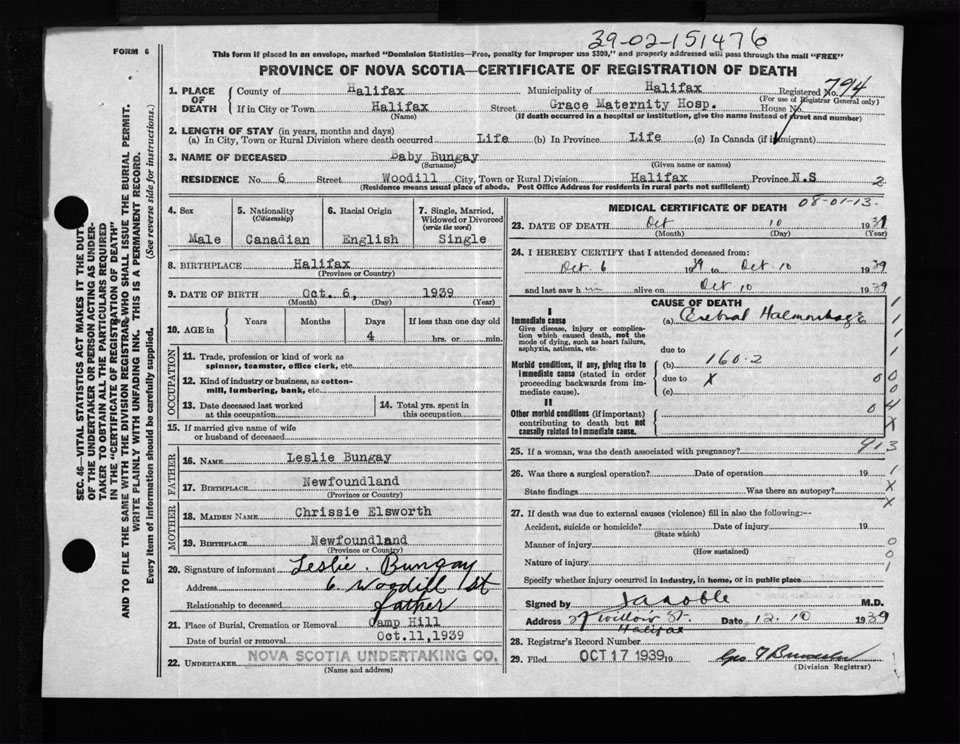 39-02-151476
FORM 6
This form if placed in an envelope, marked "Dominion Statistics—Free, penalty for improper use $300," and properly addressed will pass through the mail "FREE"
PROVINCE OF NOVA SCOTIA—CERTIFICATE OF REGISTRATION OF DEATH
1. PLACE OF DEATH
County of Halifax Municipality of Halifax Registered No. 794
(For use of Registrar General only)
If in City or Town Halifax Street Grace Maternity Hosp. House No.
(Name) (If death occurred in a hospital or institution, give the name instead of street and number)
2. LENGTH OF STAY (in years, months and days)
(a) In City, Town or Rural Division where death occurred Life (b) In Province Life (c) In Canada (if immigrant)
3. NAME OF DECEASED Baby Bungay
(Surname) (Given name or names)
RESIDENCE No. 6 Street Woodill City, Town or Rural Division Halifax Province N.S 2
(Residence means usual place of abode. Post Office Address for residents in rural parts not sufficient)
4. Sex Male
5. Nationality (Citizenship) Canadian
6. Racial Origin English
7. Single, Married, Widowed or Divorced (write the word) Single
8. BIRTHPLACE Halifax
(Province or Country)
9. DATE OF BIRTH Oct. 6, 1939
(Month) (Day) (Year)
10. AGE in Years Months Days 4 If less than one day old hrs. or min.
OCCUPATION
11. Trade, profession or kind of work as spinner, teamster, office clerk, etc.
12. Kind of industry or business, as cotton-mill, lumbering, bank, etc.
13. Date deceased last worked at this occupation
14. Total yrs. spent in this occupation
15. If married give name of wife or husband of deceased
FATHER
16. NAME Leslie Bungay
17. BIRTHPLACE Newfoundland
(Province or Country)
MOTHER
18. MAIDEN NAME Chrissie Elsworth
19. BIRTHPLACE Newfoundland
(Province or Country)
20. Signature of informant Leslie. Bungay
Address 6. Woodill St
Relationship to deceased father
21. Place of Burial, Cremation or Removal Camp Hill
Date of burial or removal Oct.11,1939
22. UNDERTAKER NOVA SCOTIA UNDERTAKING CO.
(Name and address)
MEDICAL CERTIFICATE OF DEATH 08-01-13.
23. DATE OF DEATH Oct 10 1939
(Month) (Day) (Year)
24. I HEREBY CERTIFY that I attended deceased from:
Oct 6 1939 to Oct 10 1939
and last saw h im alive on Oct 10 1939
CAUSE OF DEATH
I
Immediate cause (a) Cerebral Haemorrhage
Give disease, injury or complication which caused death, not the mode of dying, such as heart failure, asphyxia, asthenia, etc.
due to
Morbid conditions, if any, giving rise to immediate cause (stated in order proceeding backwards from immediate cause).
(b) 160-2
due to X
(c)
II
Other morbid conditions (if important) contributing to death but not causally related to immediate cause.
1
1
1
0 0
0
0 4
X
25. If a woman, was the death associated with pregnancy? 913
26. Was there a surgical operation? Date of operation 19 1
State findings Was there an autopsy? X
X
27. If death was due to external causes (violence) fill in also the following:—
Accident, suicide or homicide? Date of injury 19
(State which)
Manner of injury 0
(How sustained)
Nature of injury 0
1
Specify whether injury occurred in industry, in home, or in public place
Signed by J A Noble M.D.
Address 27 Willow St. Halifax Date 12.10 1939
28. Registrar's Record Number
29. Filed OCT 17 1939 19
(Division Registrar)
SEC. 46—VITAL STATISTICS ACT MAKES IT THE DUTY
OF THE UNDERTAKER OR PERSON ACTING AS UNDER-
TAKER TO OBTAIN ALL THE PARTICULARS REQUIRED
IN THE "CERTIFICATE OF REGISTRATION OF DEATH"
AND TO FILE THE SAME WITH THE DIVISION REGISTRAR WHO SHALL ISSUE THE BURIAL PERMIT.
WRITE PLAINLY WITH UNFADING INK. THIS IS A PERMANENT RECORD.
Every item of information should be carefully supplied. (See reverse side for instructions.)